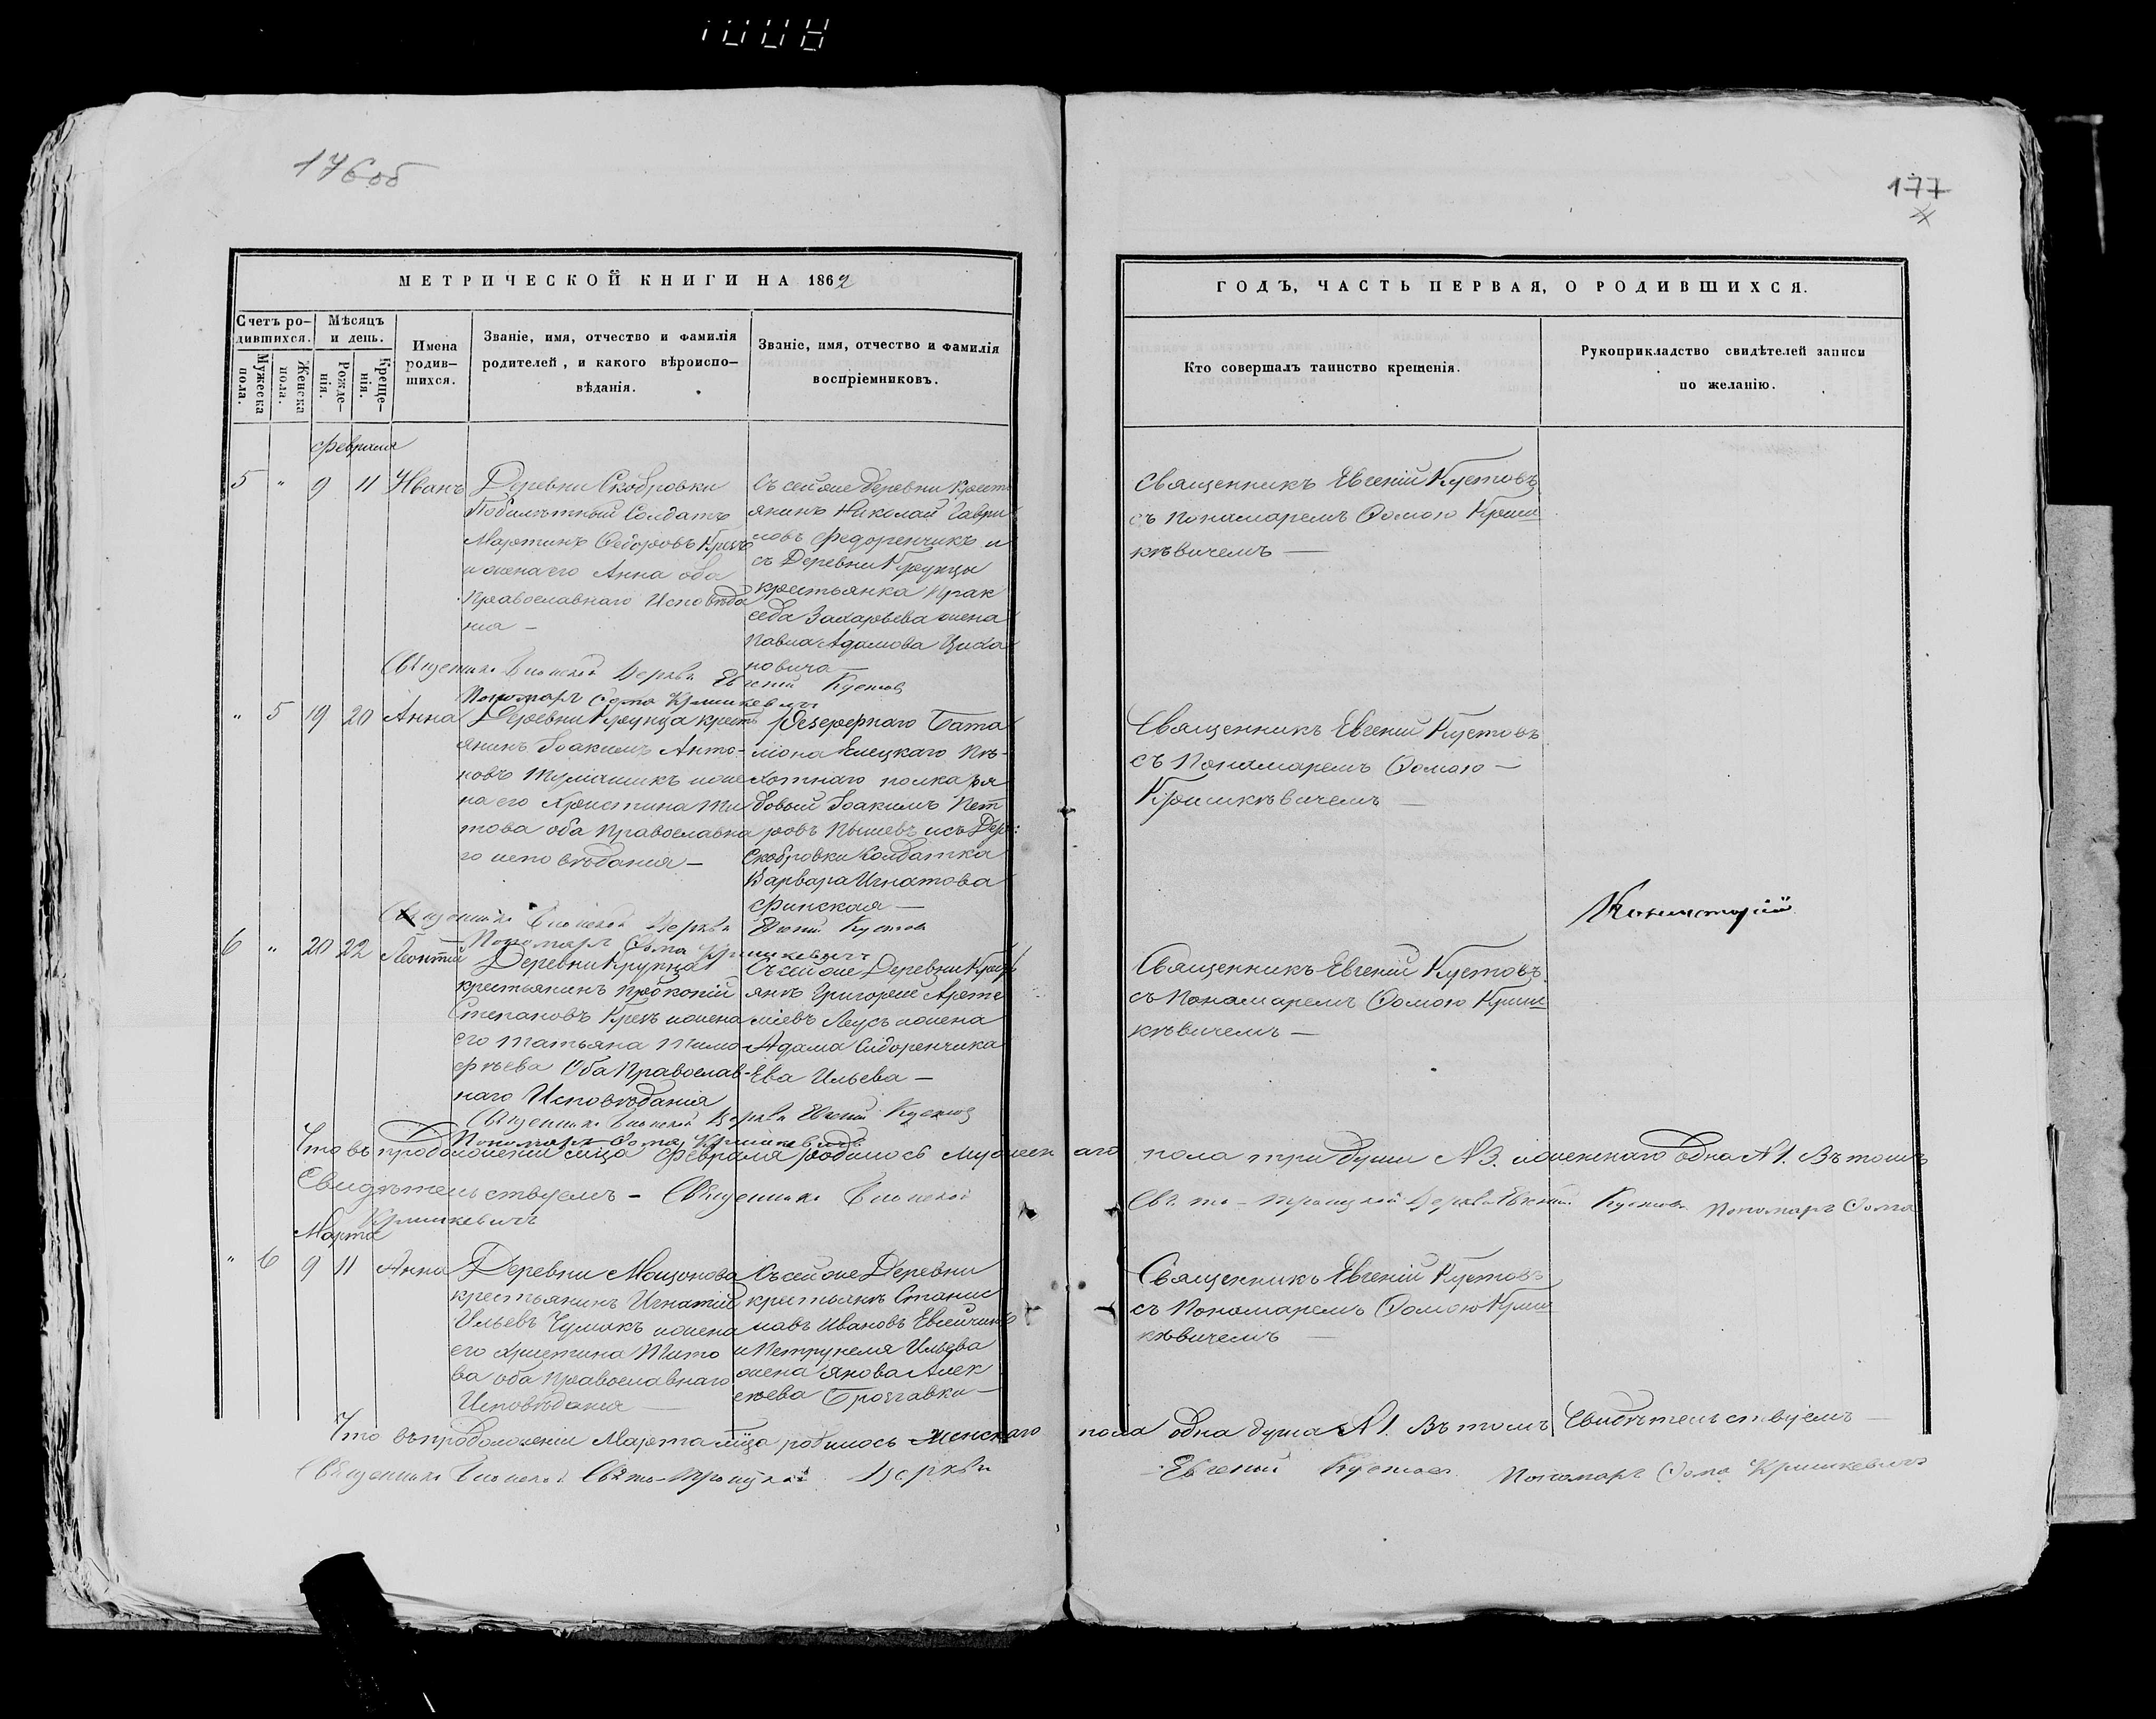 1008
176 об
177
МЕТРИЧЕСКОЙ КНИГИ НА 1862
ГОДЪ, ЧАСТЬ ПЕРВАЯ, О РОДИВШИХСЯ.
Счетъ ро-
дившихся.
Мужеска
пола.
Женска
пола.
Мѣсяцъ
и день.
Рожде-
нія.
Креще-
нія.
Имена
родив-
шихся.
Званіе, имя, отчество и фамилія
родителей, и какого вѣроиспо-
вѣданія.
Званіе, имя, отчество и фамилія
воспріемниковъ.
Кто совершалъ таинство крещенія.
Рукоприкладство свидѣтелей записи
по желанію.
Февраля
5 " 9 11 Иванъ
Деревни Скобровки
Побилѣтный Солдатъ
Мартинъ Ѳедоровъ Крехъ
и жена его Анна оба
Православнаго Исповѣда
нія —
Съ сей же деревни Крест
янинъ Николай Гаври
ловъ Федоренчикъ и
съ Деревни Крупцы
крестьянка Прак
седа Захарьева жена
Павла Адамова
новича —
Священникъ Евгеній Кустовъ
съ Пономаремъ Ѳомою Криш
кѣвичемъ —
Священникъ Церкви Евгеній Кустовъ
Пономарь Ѳома Кришкевичъ
" 5 19 20 Анна
Деревни Крупца крест
янинъ Іоакимъ Анто-
новъ Тумашикъ и же
на его Христина Ти
това оба Православна
го исповѣданія —
Резерфрнаго Бата
ліона Елецкаго Пѣ-
хотнаго полка ря
довый Іоакимъ Пет
ровъ Пышевъ и съ Дер:
Скобровки Солдатка
Варвара Игнатова
Финская —
Священникъ Евгеній Кустовъ
съ Пономаремъ Ѳомою —
Кришкѣвичемъ —
Священникъ Церкви Евгеній Кустовъ
Пономарь Ѳома Кришкевичъ
6 " 20 22 Леонтій
Деревни Крупца
крестьянинъ Прокопій
Степановъ Крехъ и жена
его Татьяна Тимо
фѣева Оба Православ-
наго Исповѣданія
Съ сей же Деревни Крест
янъ Григорей Арте
міевъ Леусъ и жена
Адама Сидоренчика
Ева Ильева —
Священникъ Евгеній Кустовъ
съ Пономаремъ Ѳомою Криш
кѣвичемъ —
Священникъ Церкви Евгеній Кустовъ
Пономарь Ѳома Кришкевичъ
Что въ продолженіи мца Февраля родилось мужеск аго пола три души № 3. и женскаго одна № 1. Въ томъ
Свидѣтельствуемъ — Священникъ Свято-Троицкой Церкви Евгеній Кустовъ Пономарь Ѳома
Кришкевичъ
Марта
" 6 9 11 Анна
Деревни Мацонова
крестьянинъ Игнатій
Ильевъ Чумакъ и жена
его Христина Тито
ва оба Православнаго
Исповѣданія —
Съ сей же Деревни
крестьянъ Станис
лавъ Ивановъ
и Петрунеля Ильева
жена Янова Алек
сѣева
Священникъ Евгеній Кустовъ
съ Пономаремъ Ѳомою Криш
кѣвичемъ —
Что въ продолженіи Марта мца родилось Женскаго пола одна душа № 1. Въ томъ Свидѣтельствуемъ —
Священникъ Свято-Троицкой Церкви Евгеній Кустовъ Пономарь Ѳома Кришкевичъ